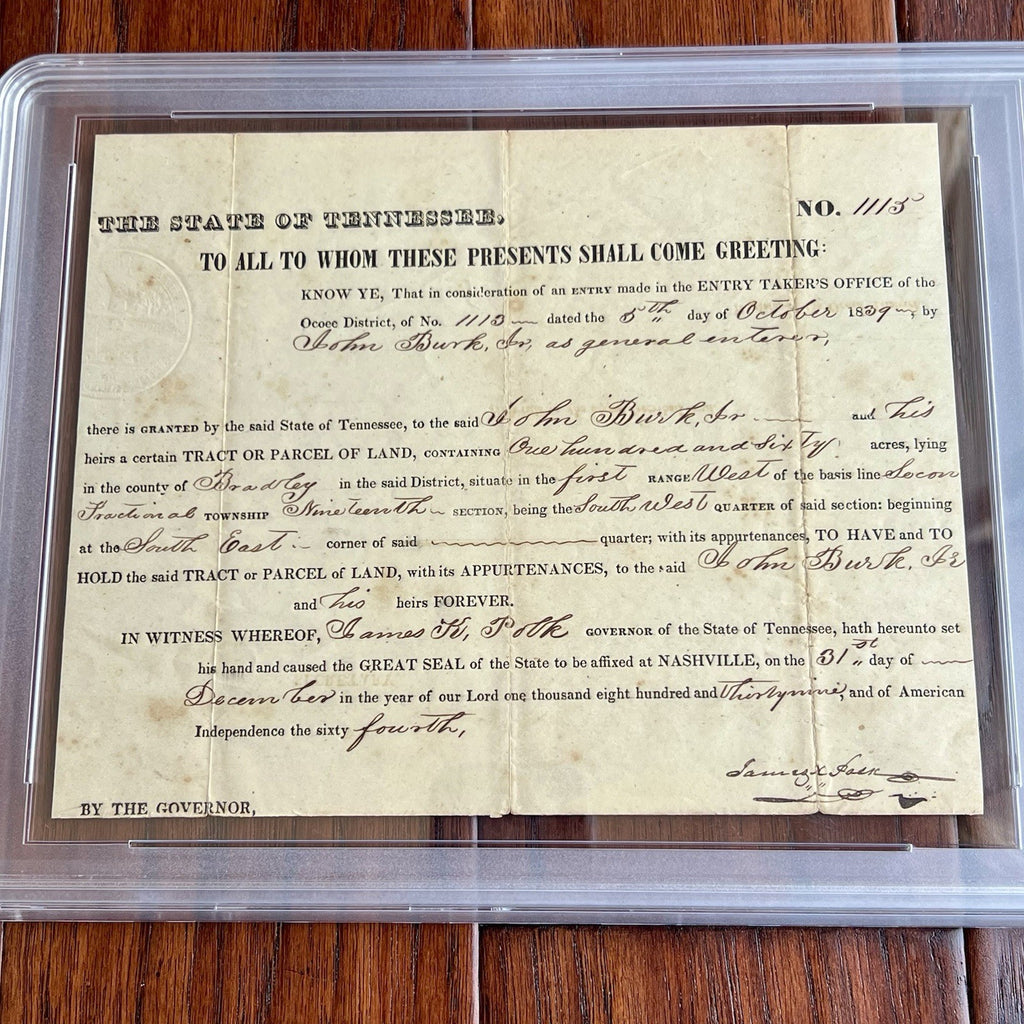 THE STATE OF TENNESSEE,
NO. 1115
TO ALL TO WHOM THESE PRESENTS SHALL COME GREETING:
KNOW YE, That in consideration of an ENTRY made in the ENTRY TAKER'S OFFICE of the
Ocoee District, of No. 1115 dated the 5th day of October 1839 by
John Burk, Jr, as general enterer,
there is GRANTED by the said State of Tennessee, to the said John Burk, Jr and his
heirs a certain TRACT OR PARCEL OF LAND, CONTAINING One hundred and Sixty acres, lying
in the county of Bradley in the said District, situate in the first RANGE West of the basis line Secon
Fractional TOWNSHIP Nineteenth SECTION, being the South West QUARTER of said section: beginning
at the South East corner of said quarter; with its appurtenances, TO HAVE and TO
HOLD the said TRACT or PARCEL of LAND, with its APPURTENANCES, to the said John Burk, Jr
and his heirs FOREVER.
IN WITNESS WHEREOF, James K, Polk GOVERNOR of the State of Tennessee, hath hereunto set
his hand and caused the GREAT SEAL of the State to be affixed at NASHVILLE, on the 31st day of
December in the year of our Lord one thousand eight hundred and thirtynine, and of American
Independence the sixty fourth,
James K Polk
BY THE GOVERNOR,